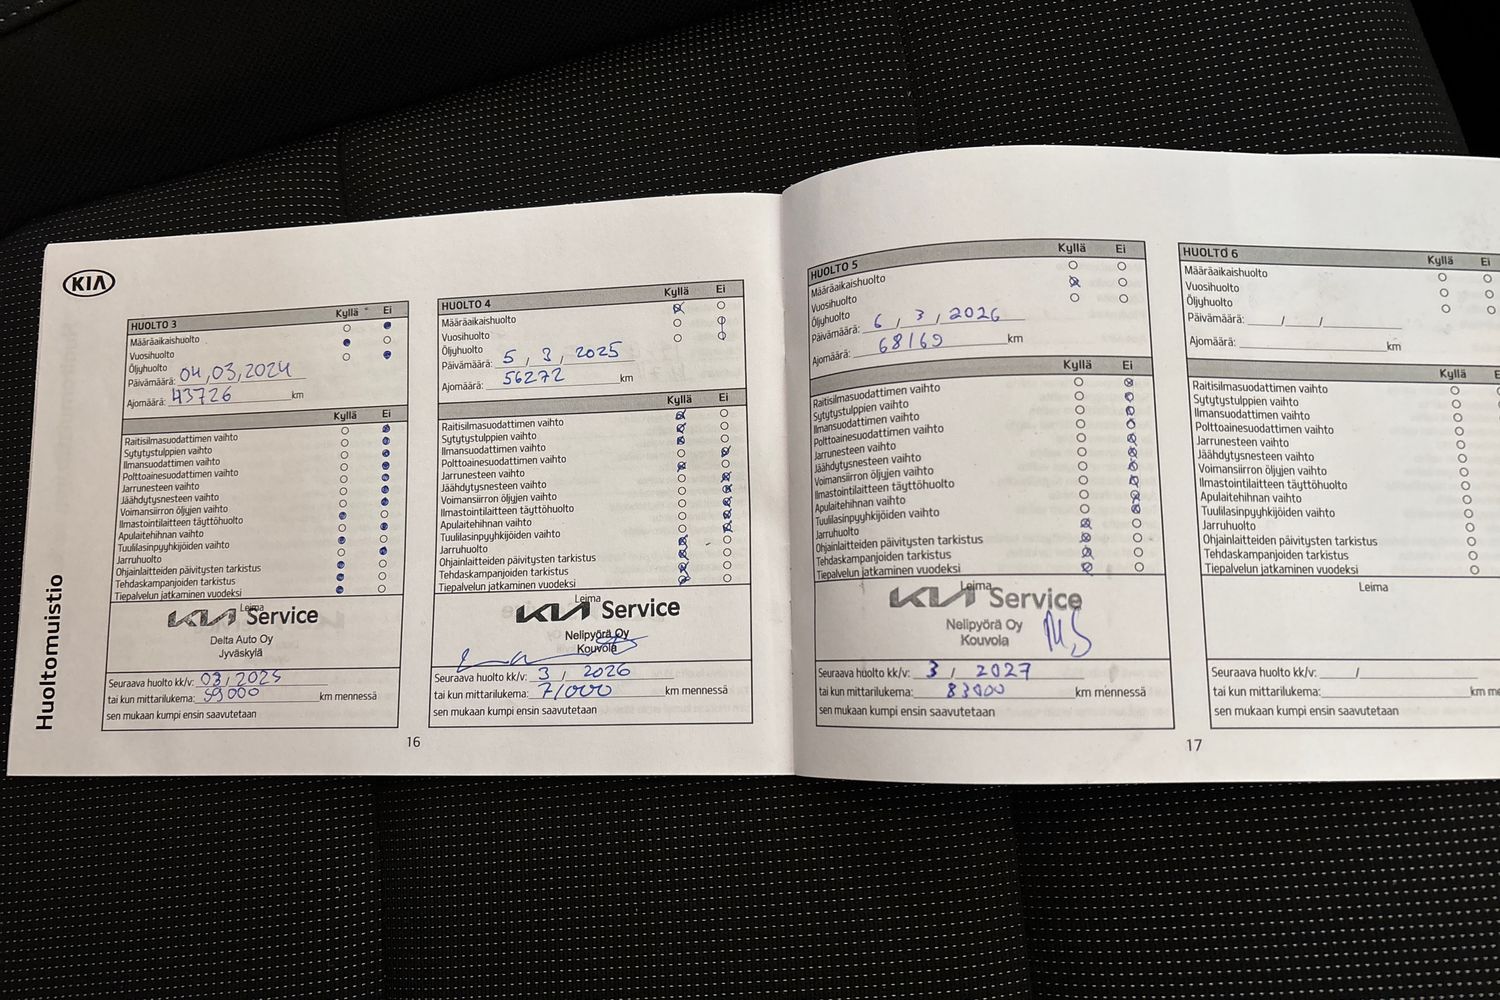 KIA
Huoltomuistio
HUOLTO 3 Kyllä Ei
Määräaikaishuolto
Vuosihuolto
Öljyhuolto
Päivämäärä: 04,03,2024
Ajomäärä: 43726 km
Kyllä Ei
Raitisilmasuodattimen vaihto
Sytytystulppien vaihto
Ilmansuodattimen vaihto
Polttoainesuodattimen vaihto
Jarrunesteen vaihto
Jäähdytysnesteen vaihto
Voimansiirron öljyjen vaihto
Ilmastointilaitteen täyttöhuolto
Apulaitehihnan vaihto
Tuulilasinpyyhkijöiden vaihto
Jarruhuolto
Ohjainlaitteiden päivitysten tarkistus
Tehdaskampanjoiden tarkistus
Tiepalvelun jatkaminen vuodeksi
Leima
KIA Service
Delta Auto Oy
Jyväskylä
Seuraava huolto kk/v: 03, 2025
tai kun mittarilukema: 59000 km mennessä
sen mukaan kumpi ensin saavutetaan
HUOLTO 4 Kyllä Ei
Määräaikaishuolto
Vuosihuolto
Öljyhuolto
Päivämäärä: 5, 3, 2025
Ajomäärä: 56272 km
Kyllä Ei
Raitisilmasuodattimen vaihto
Sytytystulppien vaihto
Ilmansuodattimen vaihto
Polttoainesuodattimen vaihto
Jarrunesteen vaihto
Jäähdytysnesteen vaihto
Voimansiirron öljyjen vaihto
Ilmastointilaitteen täyttöhuolto
Apulaitehihnan vaihto
Tuulilasinpyyhkijöiden vaihto
Jarruhuolto
Ohjainlaitteiden päivitysten tarkistus
Tehdaskampanjoiden tarkistus
Tiepalvelun jatkaminen vuodeksi
Leima
KIA Service
Nelipyörä Oy
Kouvola
Seuraava huolto kk/v: 3 / 2026
tai kun mittarilukema: 71000 km mennessä
sen mukaan kumpi ensin saavutetaan
16
HUOLTO 5 Kyllä Ei
Määräaikaishuolto
Vuosihuolto
Öljyhuolto
Päivämäärä: 6, 3, 2026
Ajomäärä: 68169 km
Kyllä Ei
Raitisilmasuodattimen vaihto
Sytytystulppien vaihto
Ilmansuodattimen vaihto
Polttoainesuodattimen vaihto
Jarrunesteen vaihto
Jäähdytysnesteen vaihto
Voimansiirron öljyjen vaihto
Ilmastointilaitteen täyttöhuolto
Apulaitehihnan vaihto
Tuulilasinpyyhkijöiden vaihto
Jarruhuolto
Ohjainlaitteiden päivitysten tarkistus
Tehdaskampanjoiden tarkistus
Tiepalvelun jatkaminen vuodeksi
Leima
KIA Service
Nelipyörä Oy
Kouvola
MS
Seuraava huolto kk/v: 3 / 2027
tai kun mittarilukema: 83000 km mennessä
sen mukaan kumpi ensin saavutetaan
HUOLTO 6 Kyllä Ei
Määräaikaishuolto
Vuosihuolto
Öljyhuolto
Päivämäärä: / /
Ajomäärä: km
Kyllä
Raitisilmasuodattimen vaihto
Sytytystulppien vaihto
Ilmansuodattimen vaihto
Polttoainesuodattimen vaihto
Jarrunesteen vaihto
Jäähdytysnesteen vaihto
Voimansiirron öljyjen vaihto
Ilmastointilaitteen täyttöhuolto
Apulaitehihnan vaihto
Tuulilasinpyyhkijöiden vaihto
Jarruhuolto
Ohjainlaitteiden päivitysten tarkistus
Tehdaskampanjoiden tarkistus
Tiepalvelun jatkaminen vuodeksi
Leima
Seuraava huolto kk/v: /
tai kun mittarilukema: km
sen mukaan kumpi ensin saavutetaan
17